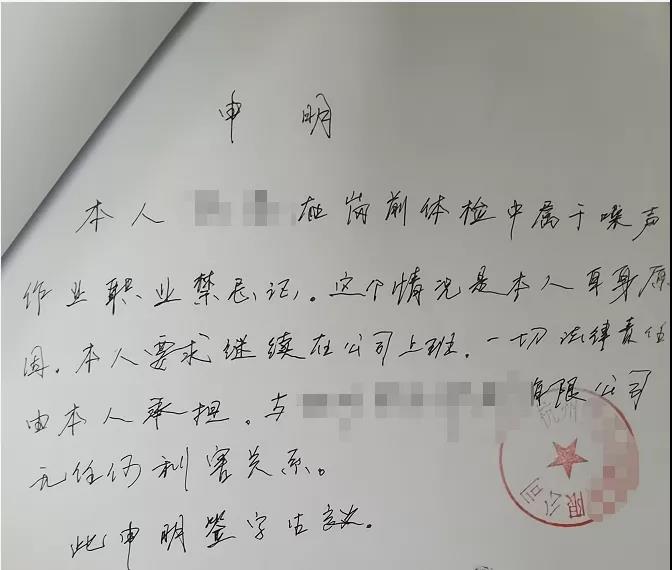 申 明
本人 在岗前体检中属于噪声
作业职业禁忌证。这个情况是本人自身原
因。本人要求继续在公司上班。一切法律责任
由本人承担。与 有限公司
无任何利害关系。
此申明签字
杭州 限公司